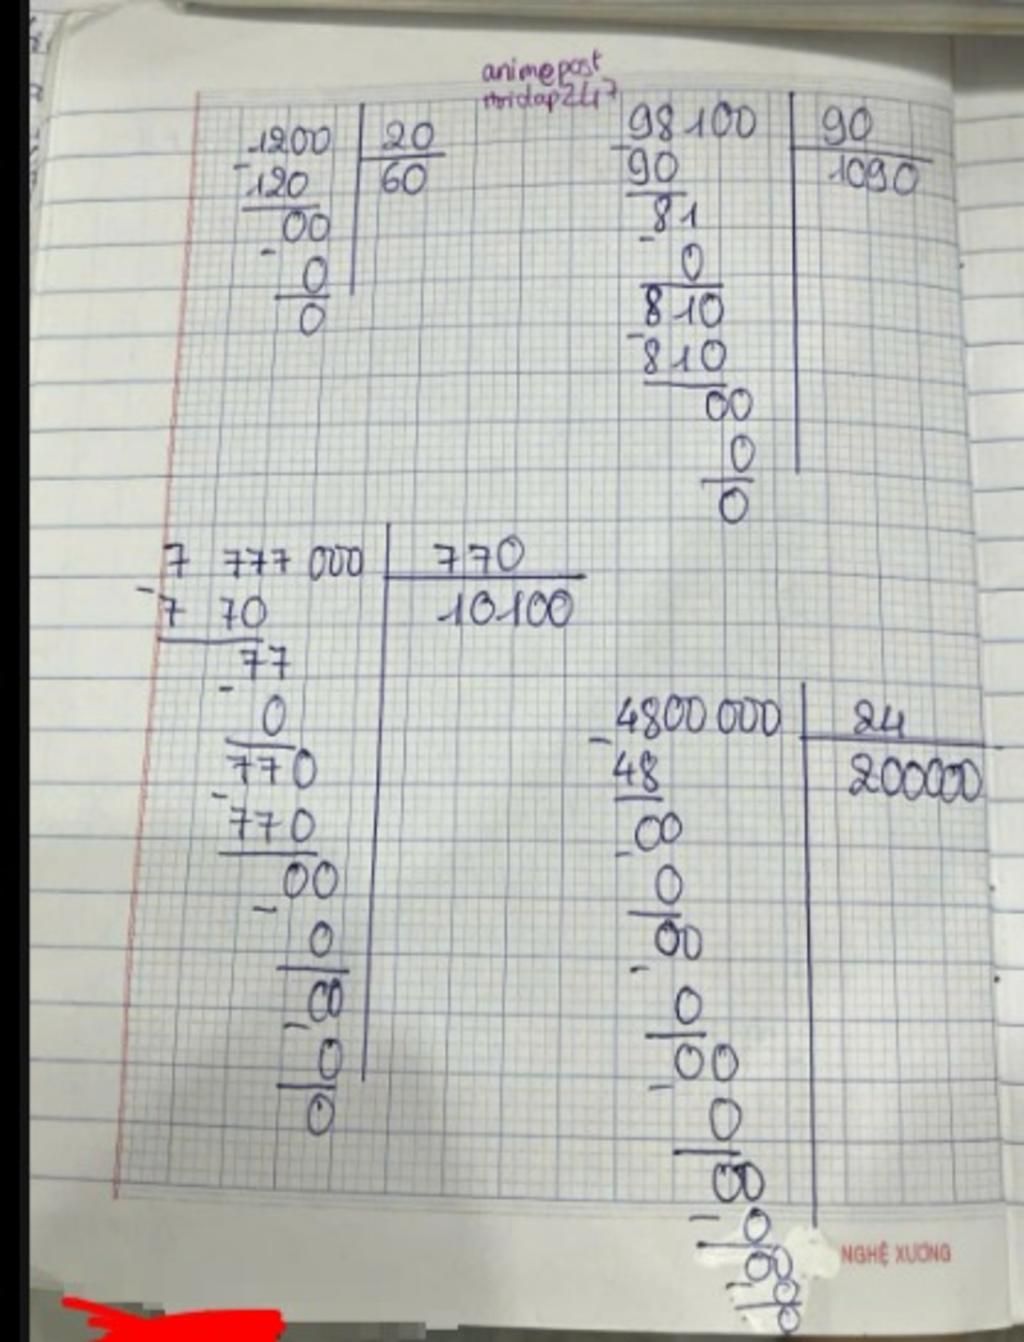 animepost
hoidap247
1200 20
- 120 60
00
- 0
0
98100 90
- 90 1090
81
- 0
810
- 810
00
0
0
7 777 000 770
- 7 70 10100
77
- 0
770
- 770
00
- 0
00
- 0
0
4800 000 24
- 48 200000
00
- 0
00
- 0
00
- 0
00
- 0
00
- 0
0
NGHỆ XƯƠNG